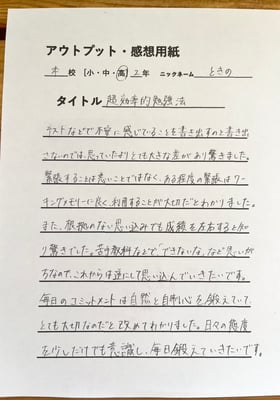 アウトプット・感想用紙
本 校 [小・中・高] 2年 ニックネーム ときの
タイトル 超効率的勉強法
テストなどで不安に感じていることを書き出すのと書き出
さないのでは、思っていたよりとても大きな差があり驚きました。
緊張することは悪いことではなく、ある程度の緊張はワー
キングメモリーに良く、利用することが大切だとわかりました。
また、根拠のない思い込みでも成績を左右すると知
り驚きでした。苦手教科などで「できないな」など思いが
ちなので、これからは逆にして思い込んでいきたいです。
毎日のコミットメントは自然と自制心を鍛えていて
とても大切なのだと改めてわかりました。日々の態度
を少しだけでも意識し、毎日鍛えていきたいです。